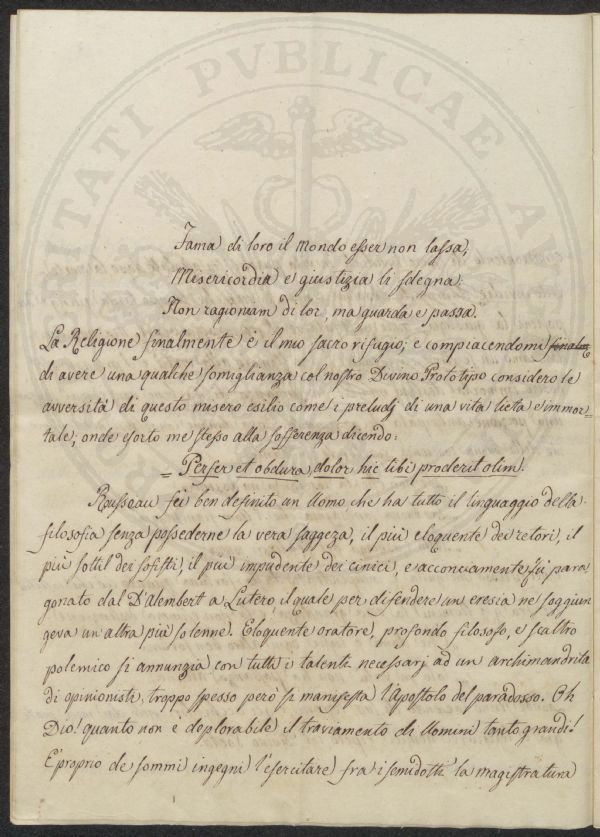 Fama di loro il Mondo esser non lassa,
Misericordia e giustizia li sdegna.
Non ragioniam di lor, ma guarda e passa.
La Religione finalmente è il mio sacro rifugio; e compiacendomi
di avere una qualche somiglianza col nostro Divino Prototipo considero le
avversità di questo misero esilio come i preludj di una vita lieta e immor=
tale; onde esorto me stesso alla sofferenza dicendo:
= Perfer et obdura, dolor hic tibi proderit olim.
Rousseau fù ben definito un Uomo, che ha tutto il linguaggio della
filosofia senza possederne la vera saggeza, il più eloquente de retori, il
più sottil dei sofisti, il più impudente dei cinici, e acconciamente fù para
gonato dal D'Alembert a Lutero, il quale per difendere un eresia ne soggiun
geva un'altra più solenne. Eloquente oratore, profondo filosofo, e scaltro
polemico si annunzia con tutti i talenti necessarj ad un archimandrita
di opinionisti; troppo spesso però si manifesta l'Apostolo del paradosso. Oh
Dio! quanto non è deplorabile il traviamento di Uomini tanto grandi!
E' proprio de sommi ingegni l'esercitare fra i semidotti la magistratura
PUBLICAE